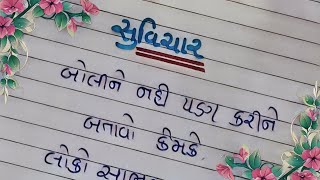 સુવિચાર
બોલીને નહી પણ કરીને
બતાવો કેમકે
લોકો